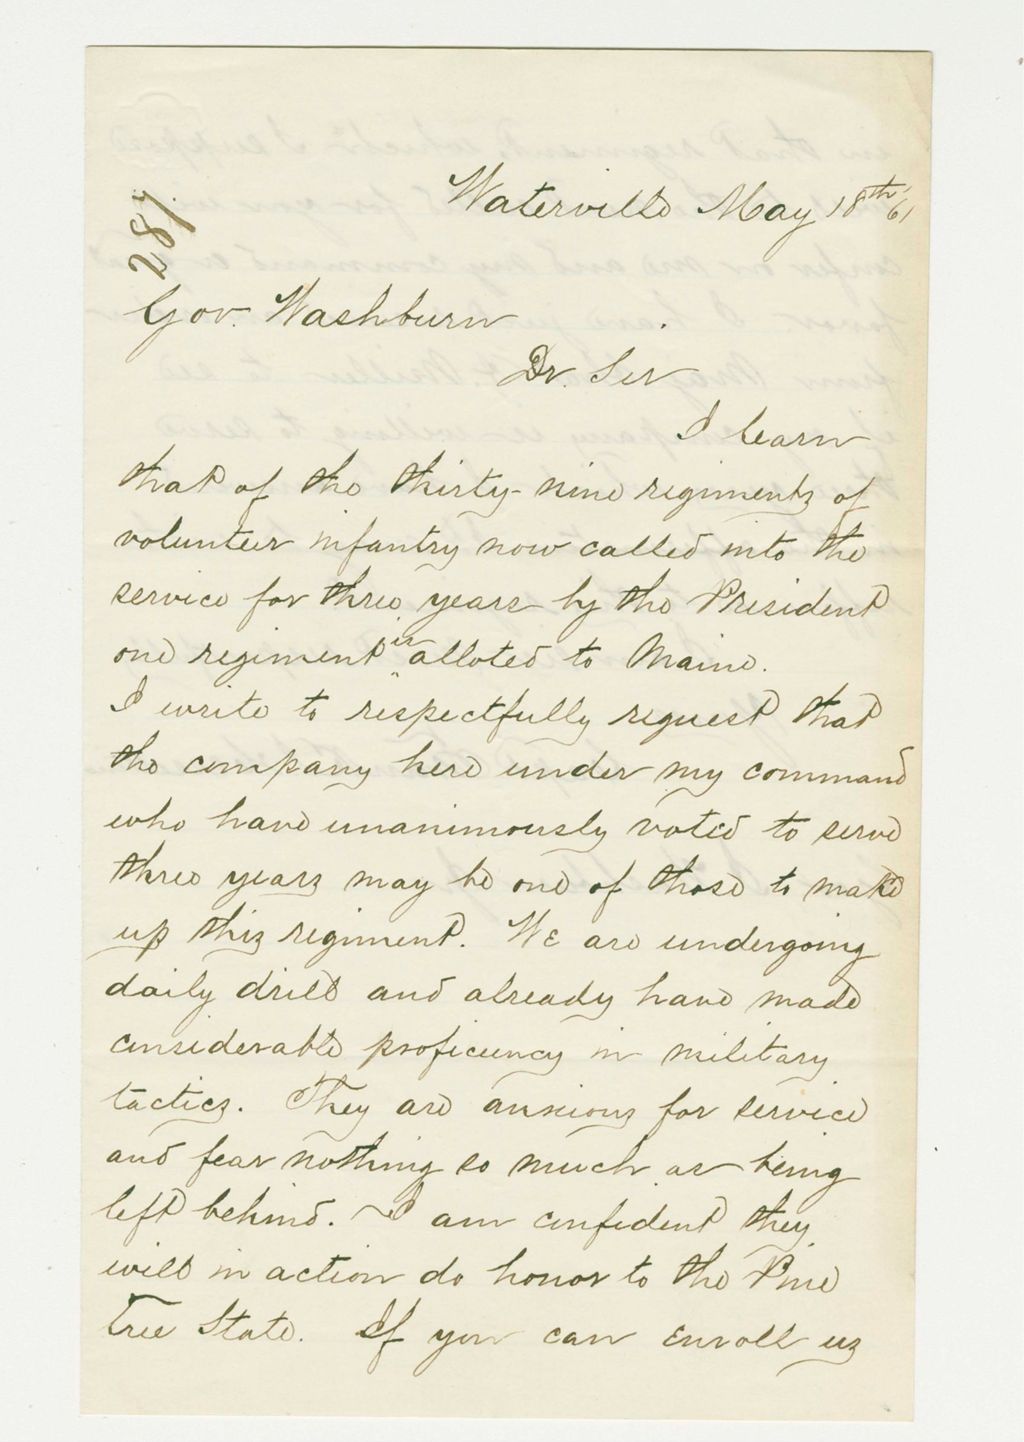 287.
Waterville May 18th /61
Gov. Washburn
Dr. Sir
I learn
that of the thirty-nine regiments of
volunteer infantry now called into the
service for three years by the President
one regiment is alloted to Maine.
I write to respectfully request that
the company here under my command
who have unanimously voted to serve
three years may be one of those to make
up this regiment. We are undergoing
daily drill and already have made
considerable proficiency in military
tactics. They are anxious for service
and fear nothing so much as being
left behind. I am confident they
will in action do honor to the Pine
Tree State. If you can enroll us